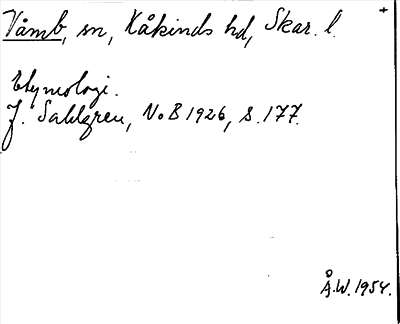 Våmb, sn, Kåkinds hd, Skar. l. +
Etymologi.
J. Sahlgren, NoB 1926, s. 177.
Å.W. 1954.